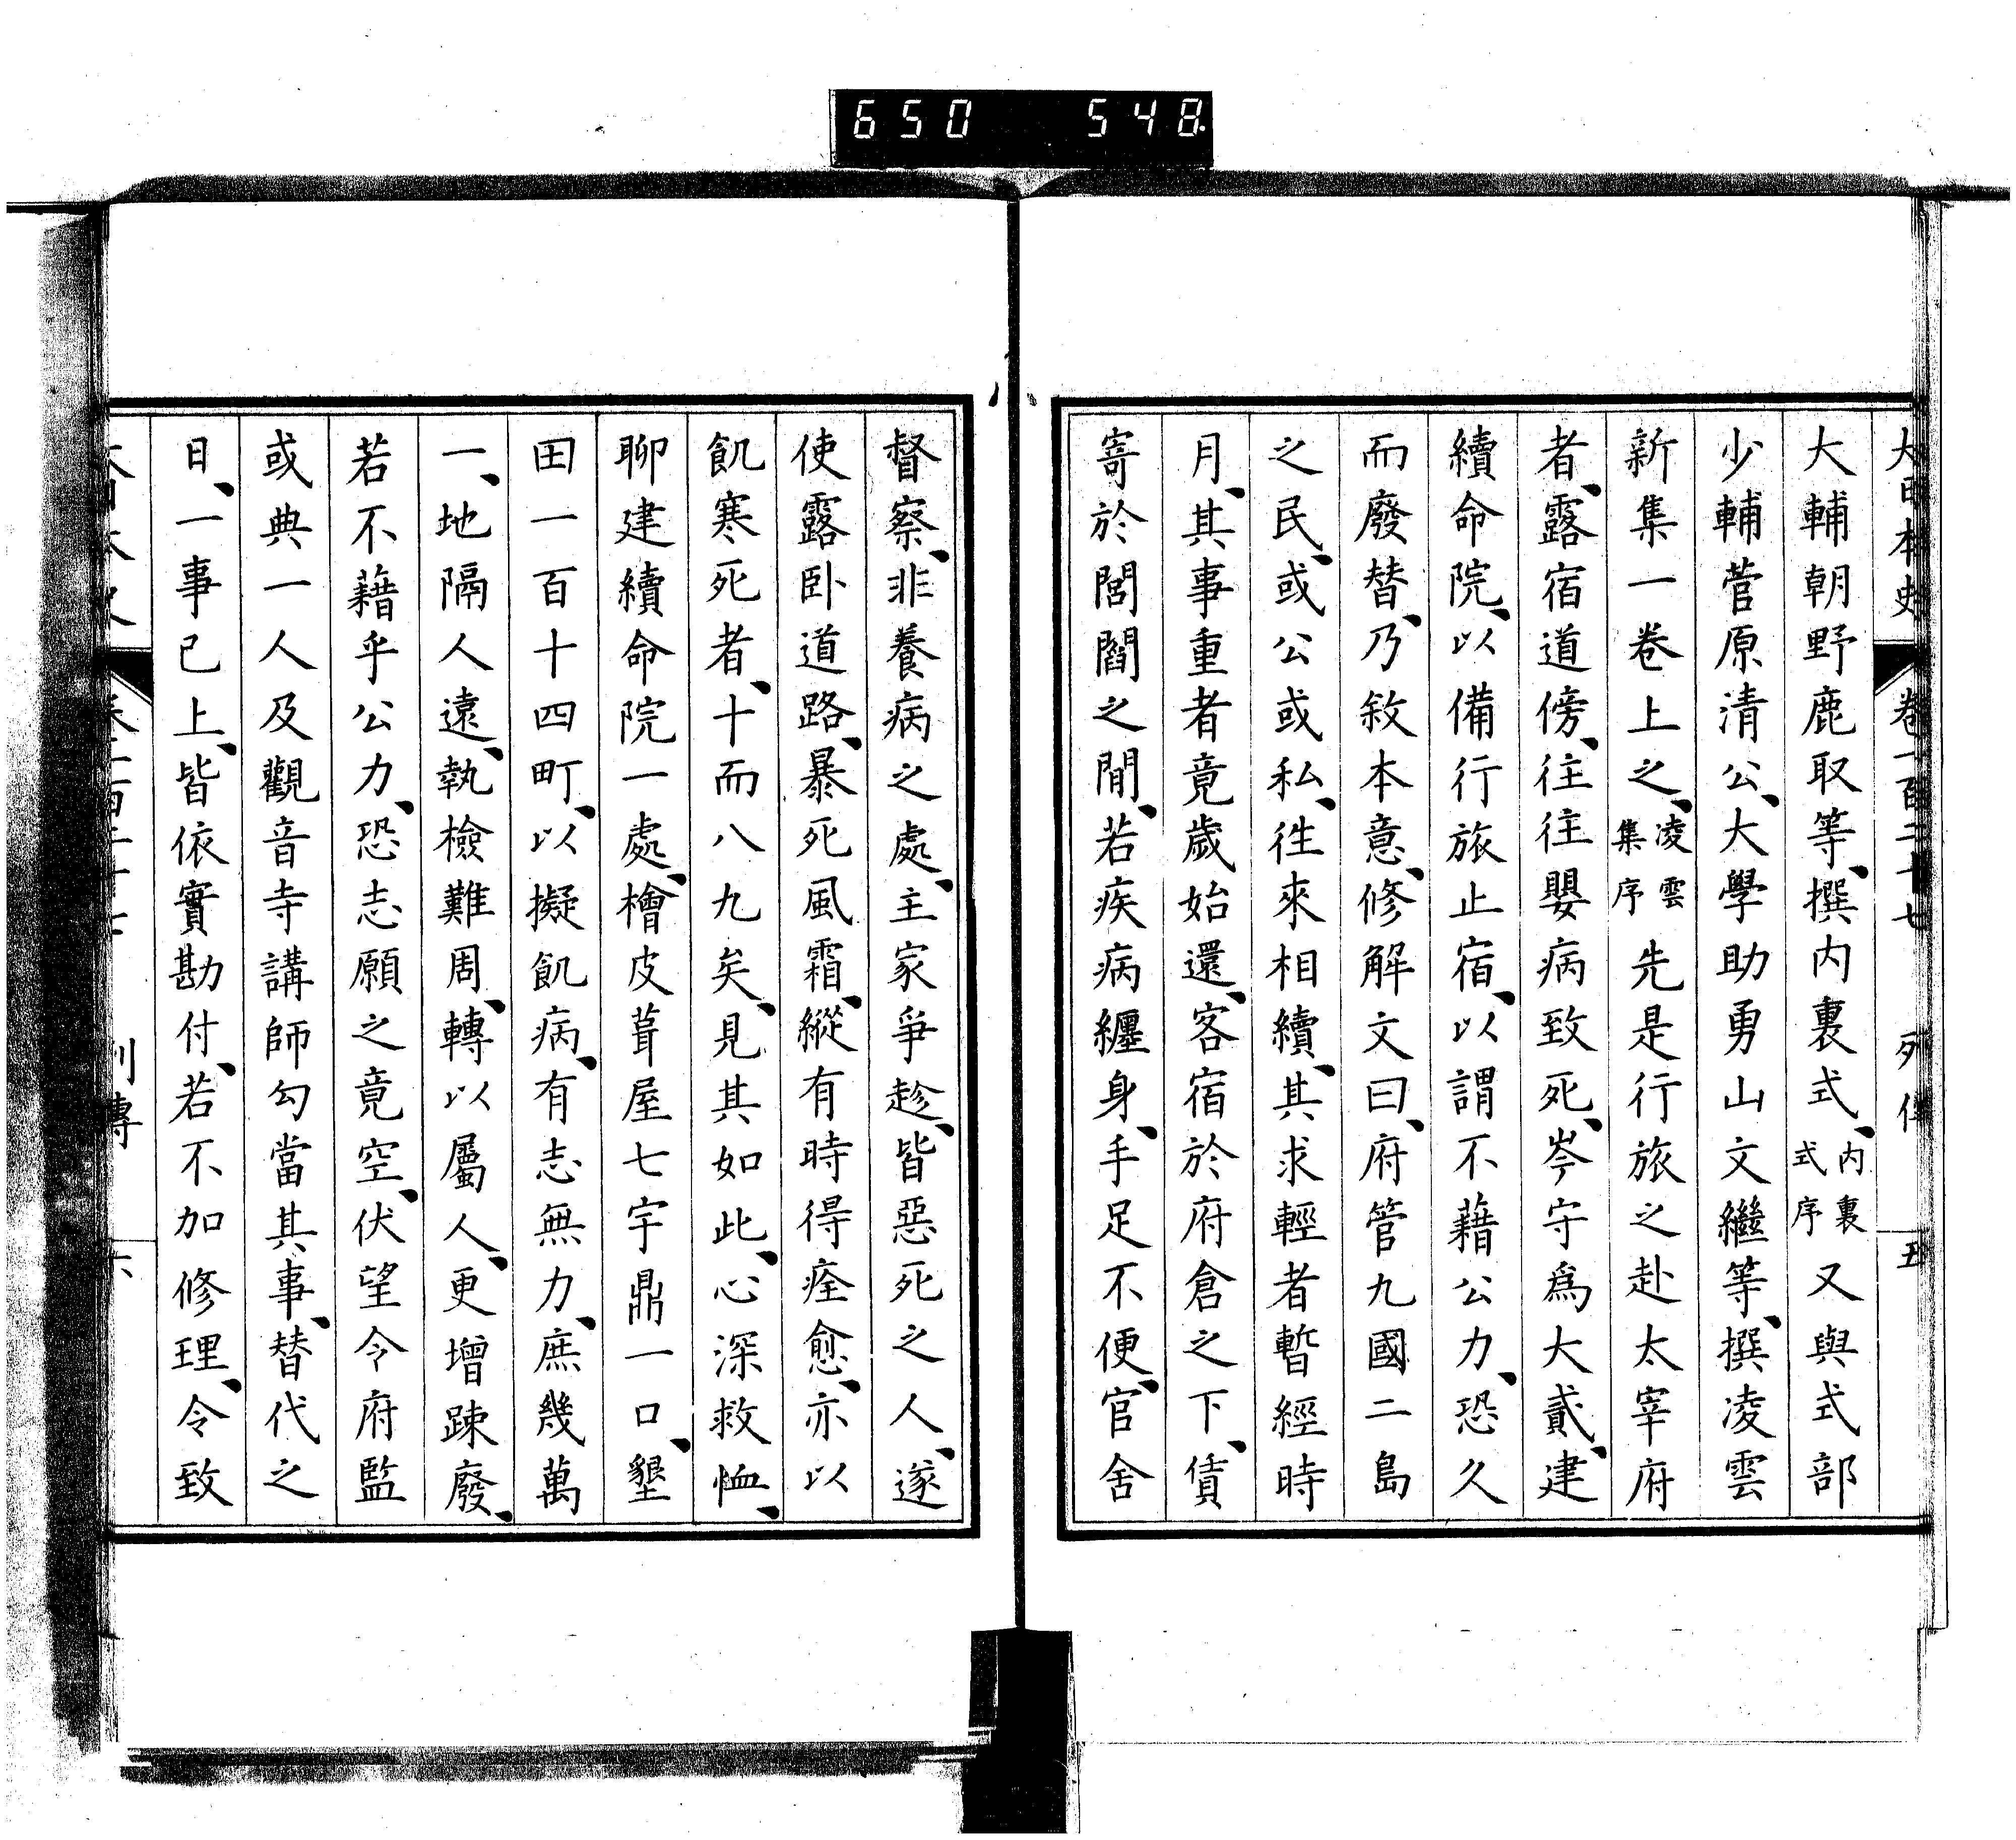 650 548
大日本史 卷一百二十七 列傳 五
大輔朝野鹿取等、撰内裏式、内裏式序又與式部
少輔菅原清公、大學助勇山文繼等、撰凌雲
新集一卷上之、凌雲集序先是行旅之赴太宰府
者、露宿道傍、往往嬰病致死、岑守爲大貳、建
續命院、以備行旅止宿、以謂不藉公力、恐久
而廢替、乃敘本意、修解文曰、府管九國二島
之民、或公或私、往來相續、其求輕者暫經時
月、其事重者竟歲始還、客宿於府倉之下、賃
寄於閭閻之間、若疾病纏身、手足不便、官舍
督察、非養病之處、主家爭趁、皆惡死之人、遂
使露臥道路、暴死風霜、縱有時得痊愈、亦以
飢寒死者、十而八九矣、見其如此、心深救恤、
聊建續命院一處、檜皮葺屋七宇鼎一口、墾
田一百十四町、以擬飢病、有志無力、庶幾萬
一、地隔人遠、執檢難周、轉以屬人、更增踈廢、
若不藉乎公力、恐志願之竟空、伏望令府監
或典一人及觀音寺講師勾當其事、替代之
日、一事已上、皆依實勘付、若不加修理、令致